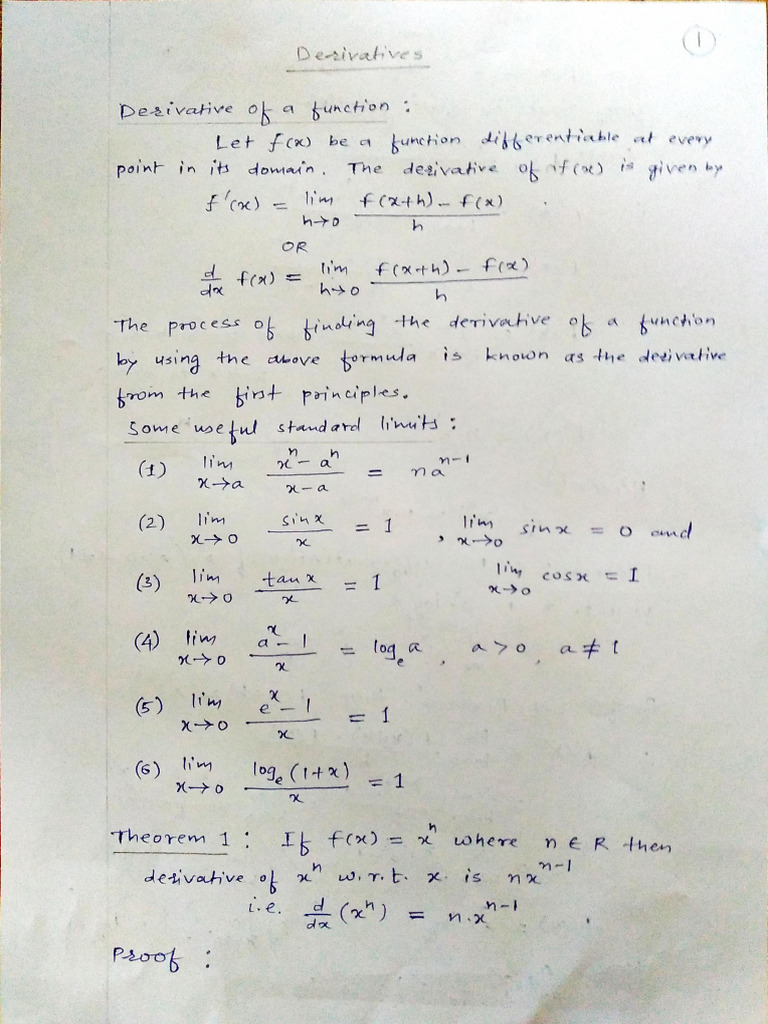 1
Derivatives
Derivative of a function :
Let f(x) be a function differentiable at every
point in its domain. The derivative of f(x) is given by
f'(x) = lim h→0 f(x+h) – f(x) / h
OR
d/dx f(x) = lim h→0 f(x+h) – f(x) / h
The process of finding the derivative of a function
by using the above formula is known as the derivative
from the first principles.
Some useful standard limits :
(1) lim x→a xⁿ – aⁿ / x – a = naⁿ⁻¹
(2) lim x→0 sinx / x = 1 , lim x→0 sinx = 0 and
(3) lim x→0 tanx / x = 1 lim x→0 cosx = 1
(4) lim x→0 aˣ – 1 / x = logₑa , a > 0, a ≠ 1
(5) lim x→0 eˣ – 1 / x = 1
(6) lim x→0 logₑ(1+x) / x = 1
Theorem 1 : If f(x) = xⁿ where n ∈ R then
derivative of xⁿ w.r.t. x. is nxⁿ⁻¹
i.e. d/dx (xⁿ) = n.xⁿ⁻¹
Proof :